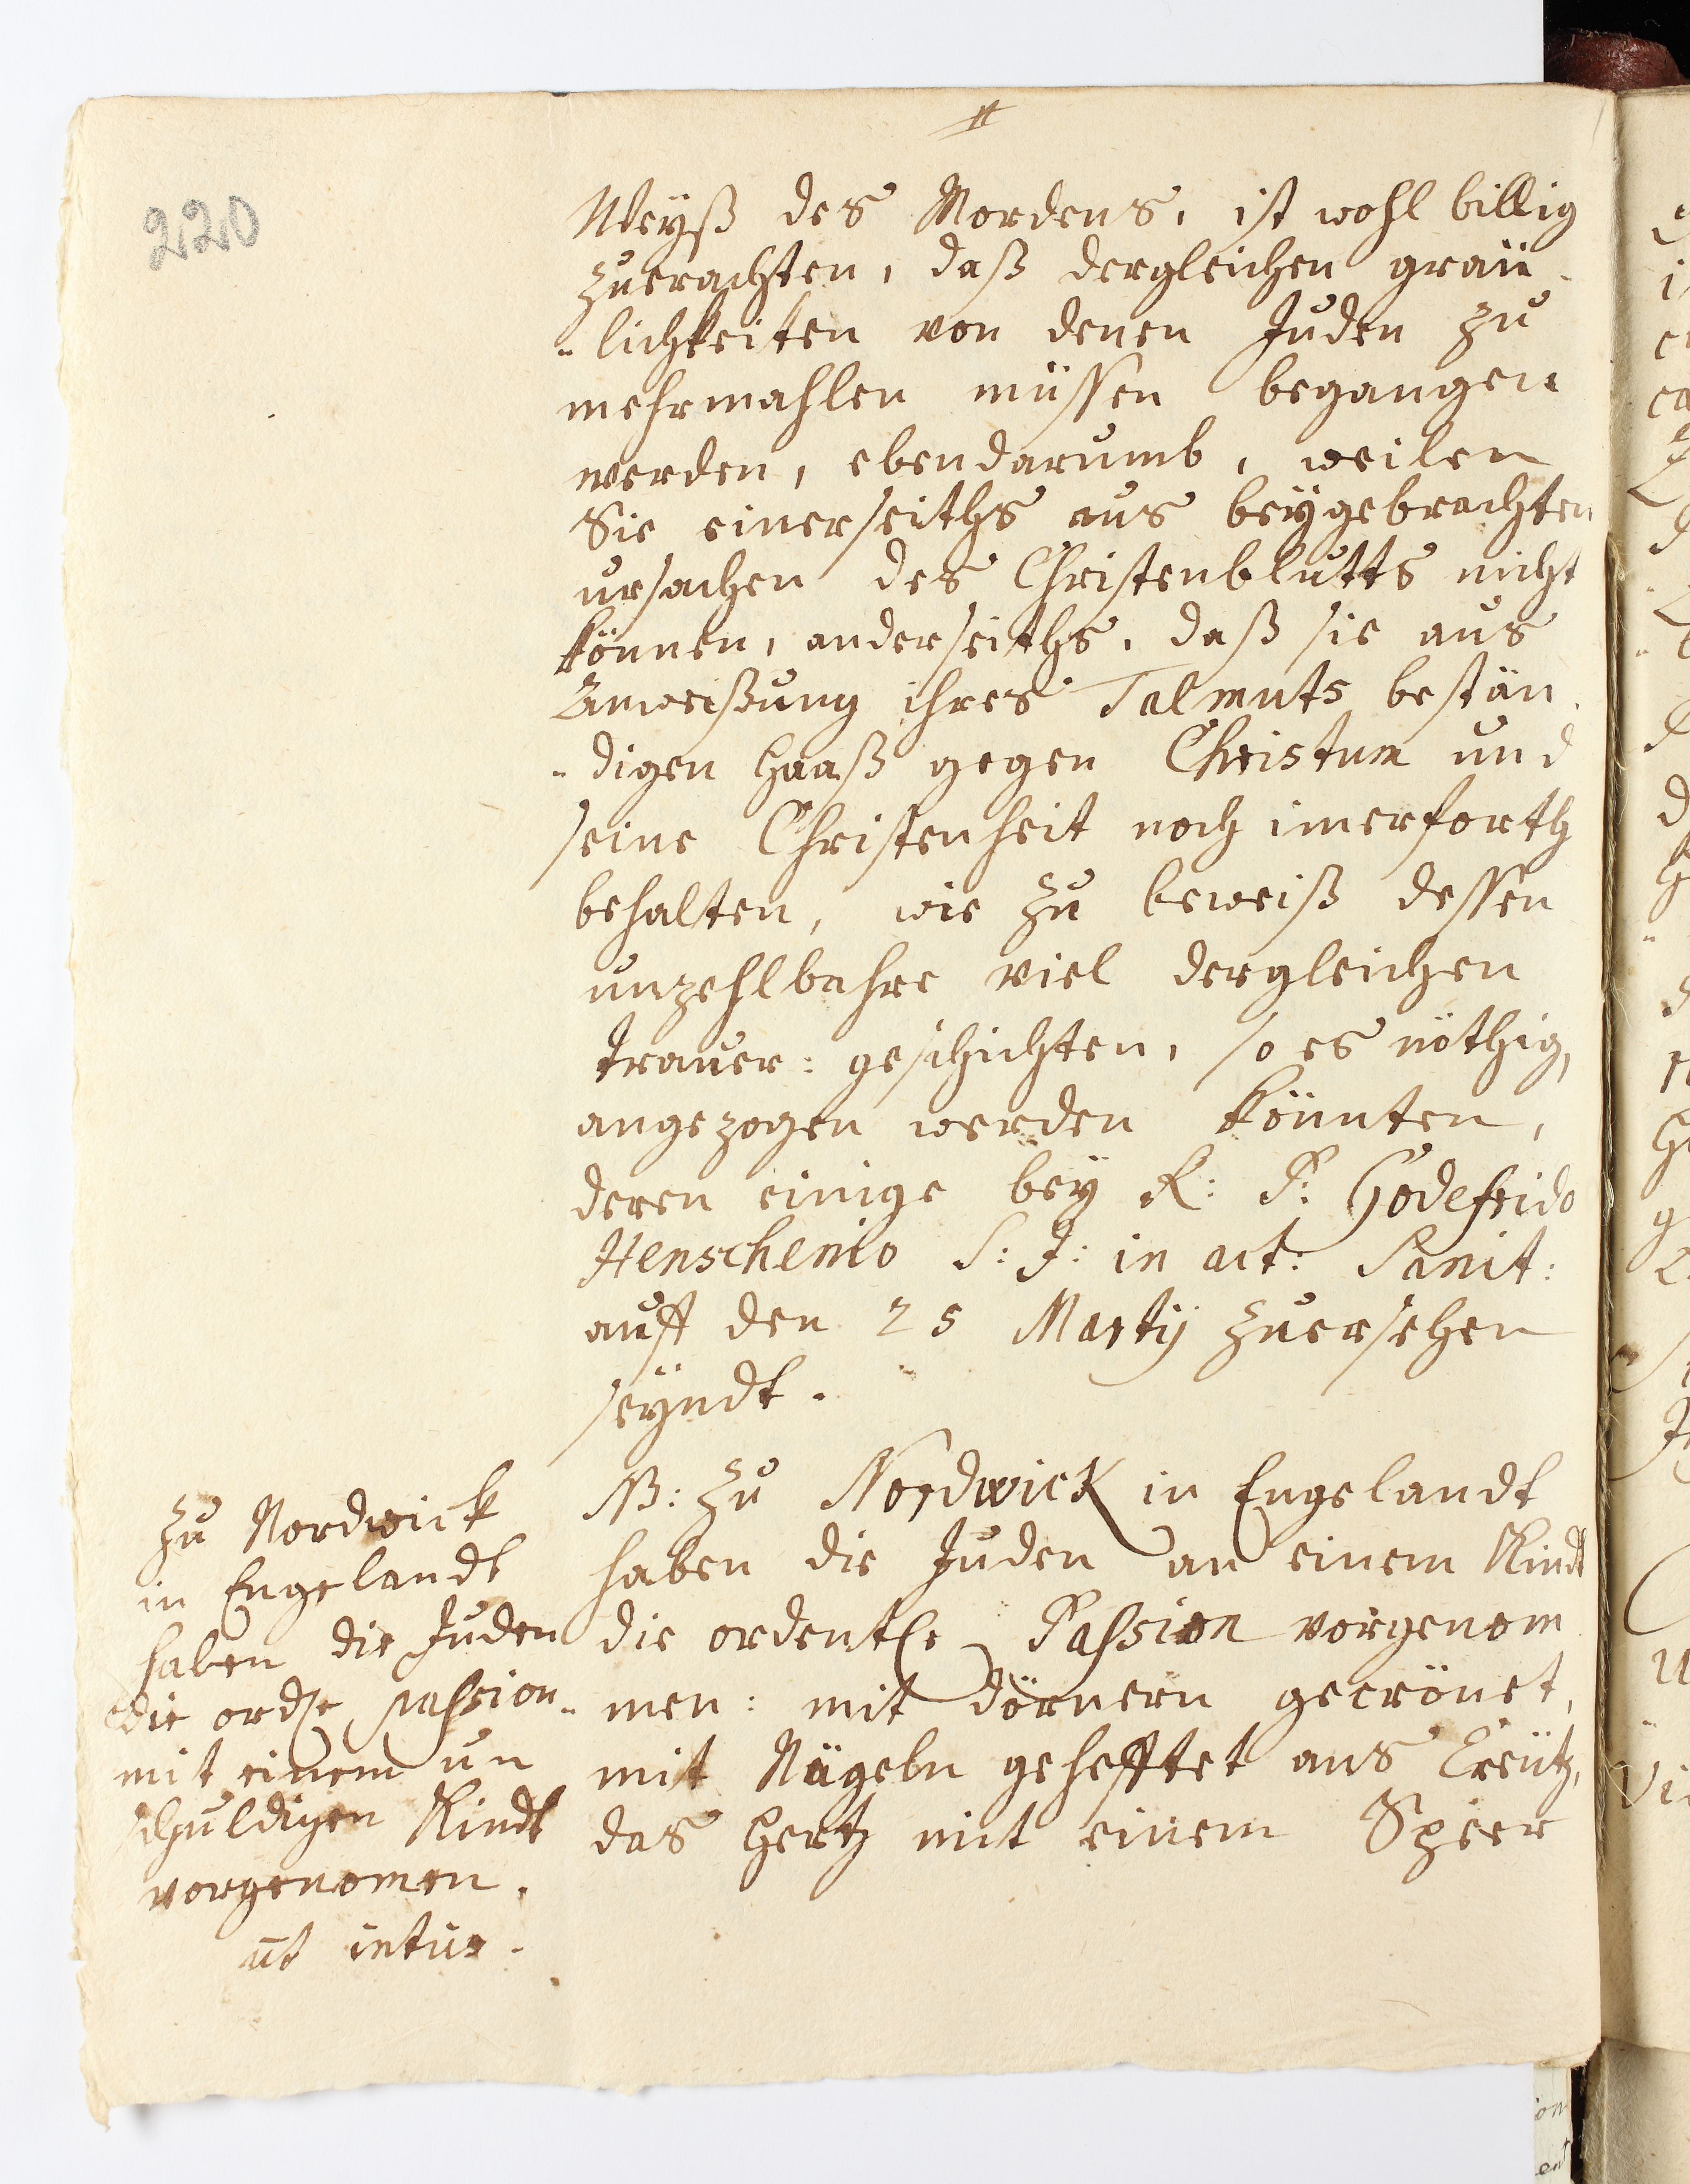 220
Weÿß des Mordens, ist wohl billig
zuerachten, daß dergleichen gräü-
-lichkeiten von denen Juden zu
mehrmahlen müssen begangen
werden, ebendarumb, weilen
Sie einerseiths aus beÿgebrachten
ursachen des Christenblutts nicht
können, anderseiths, daß sie aus
Anweißung ihres Talmuts bestän-
-digen Haaß gegen Christum und
seine Christenheit noch imerforth
behalten, wie zu beweiß dessen
unzehlbahre viel dergleichen
Trauer: geschichten, so es nöthig,
angezogen werden könnten,
deren einige beÿ R: P: Godefrido
Henschenio S: J: in act: Sanct:
auff den 25 Martÿ zuersehen
seÿndt.
NB: Zu Nordwick in Engelandt
haben die Juden an einem Kindt
die ordentle Passion vorgenom
-men: mit dörnern gecrönet,
mit Nägeln gehefftet ans Creütz,
das Hertz mit einem Speer
Zu Nordwick
in Engelandt
haben die Juden
die ordle passion
mit einem un
schuldigen Kindt
vorgenomen.
ut intus.